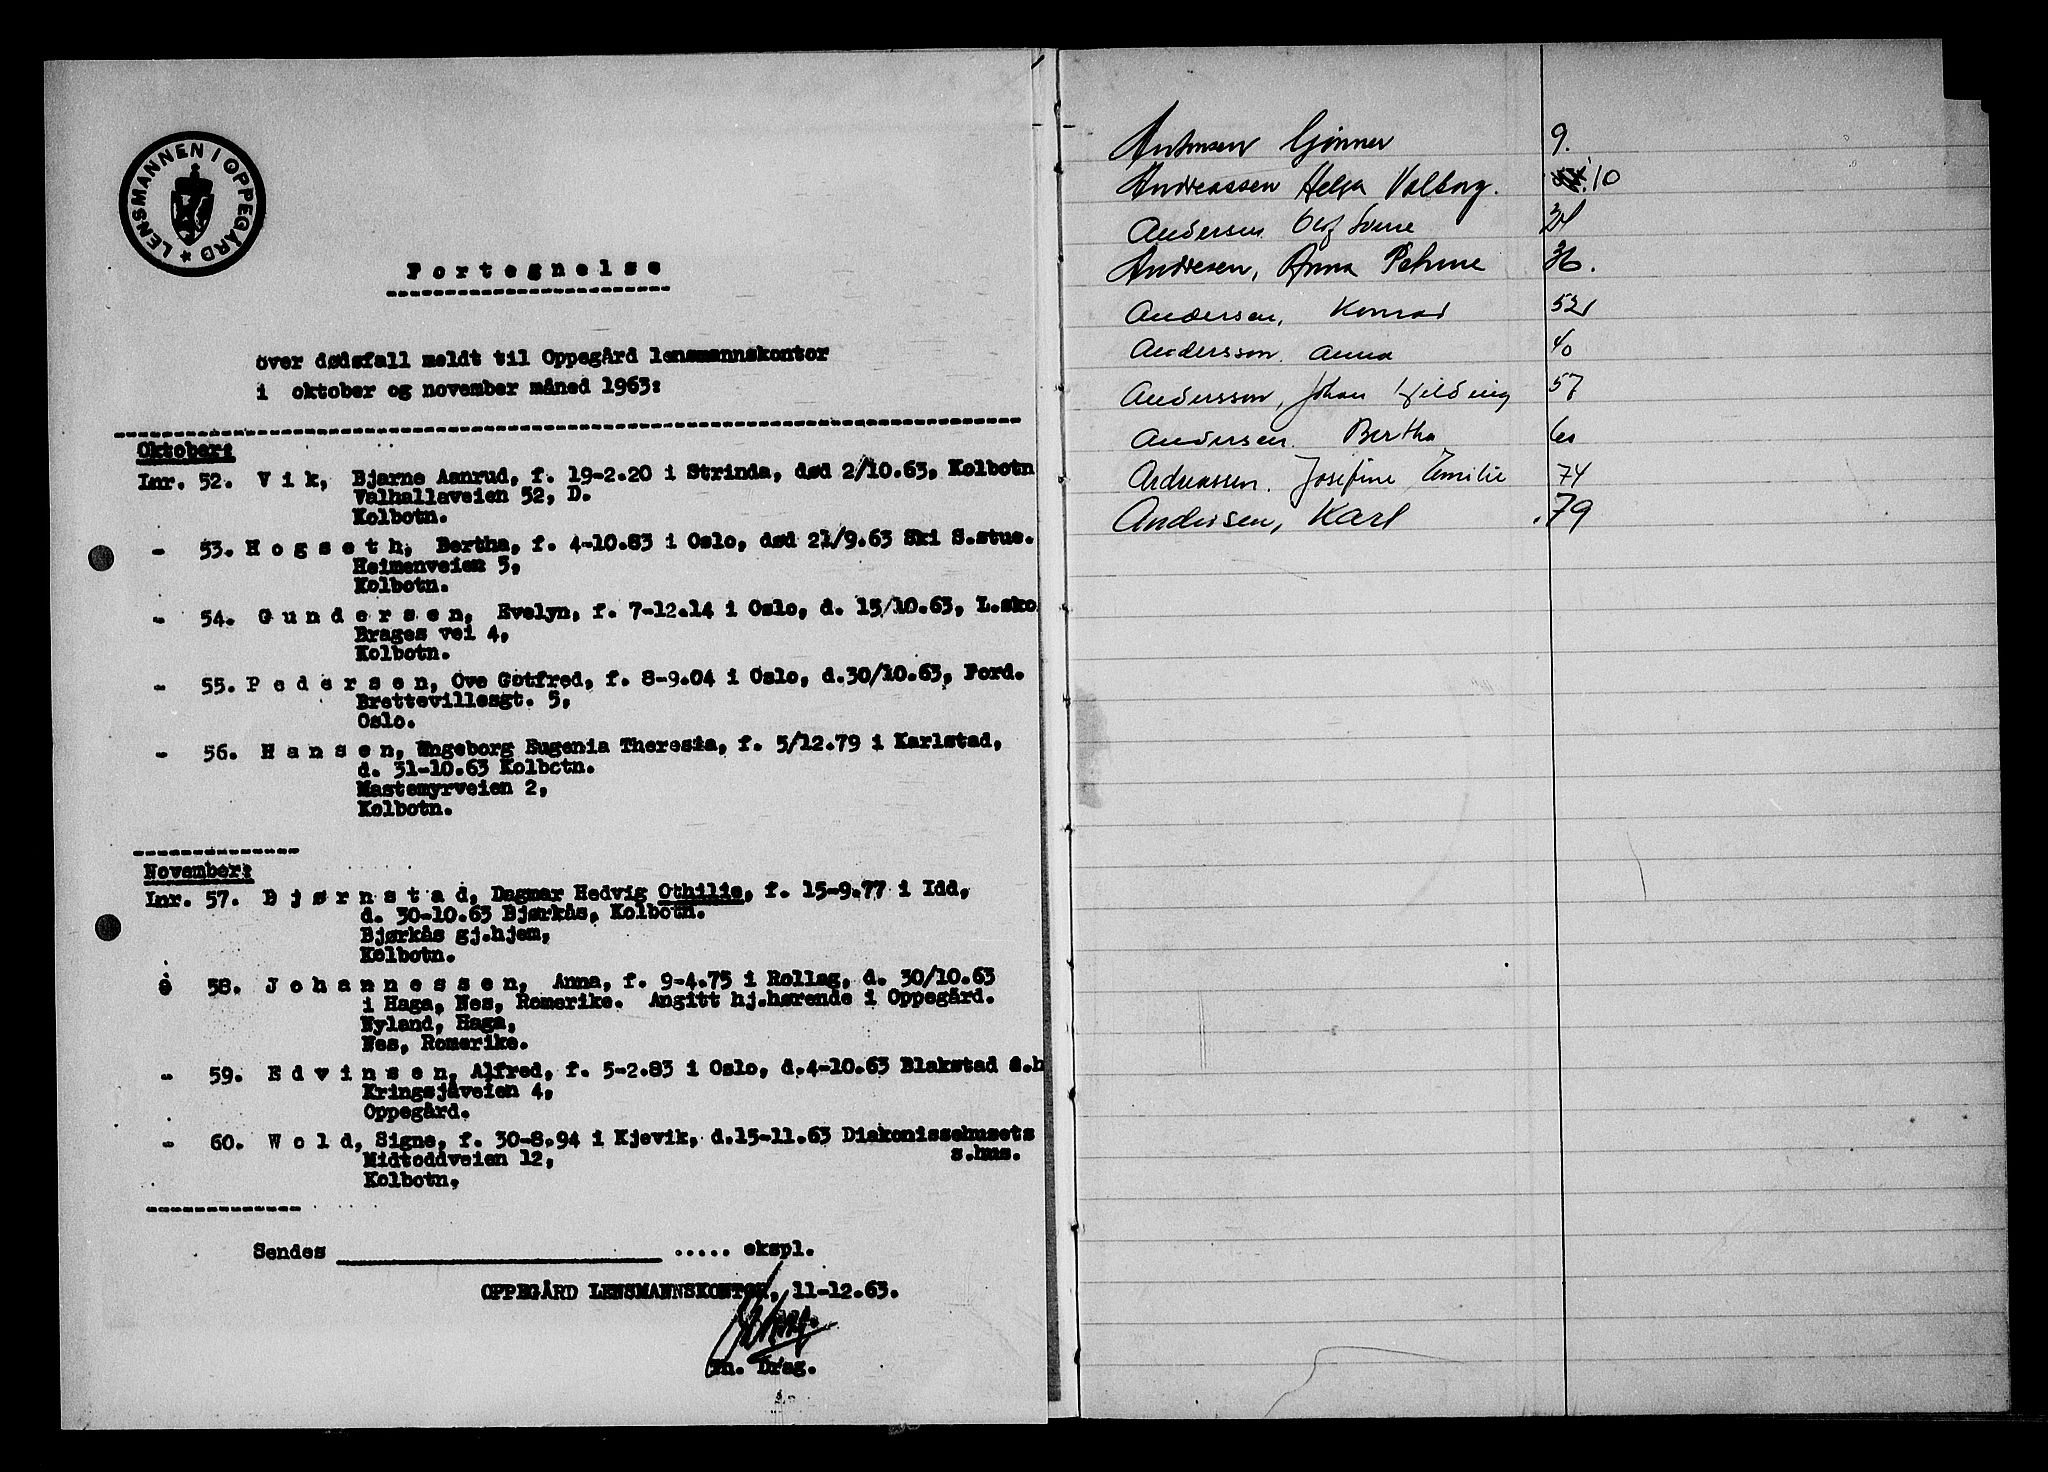 LENSMANNEN I OPPEGÅRD
F o r t e g n e l s e
over dødsfall meldt til Oppegård lensmannskontor
i oktober og november måned 1963:
Oktober:
Lnr. 52. V i k, Bjarne Aanrud, f. 19-2.20 i Strinda, død 2/10.63, Kolbotn
Valhallaveien 52, D.
Kolbotn.
- 53. H o g s e t h, Bertha, f. 4-10.83 i Oslo, død 21/9.63 Ski S.stue.
Heimenveien 5,
Kolbotn.
- 54. G u n d e r s e n, Evelyn, f. 7-12.14 i Oslo, d. 15/10.63, L.sko
Brages vei 4,
Kolbotn.
- 55. P e d e r s e n, Ove Gotfred, f. 8-9.04 i Oslo, d.30/10.63, Ford.
Brettevillesgt. 5,
Oslo.
- 56. H a n s e n, Engeborg Eugenia Theresia, f. 5/12.79 i Karlstad,
d. 31-10.63 Kolbotn.
Mastemyrveien 2,
Kolbotn.
November:
Lnr. 57. B j ø r n s t a d, Dagmar Hedvig Othilie, f. 15-9.77 i Idd,
d. 30-10.63 Bjørkås, Kolbotn.
Bjørkås gj.hjem,
Kolbotn.
58. J o h a n n e s s e n, Anna, f. 9-4.75 i Rollag, d. 30/10.63
i Haga, Nes, Romerike. Angitt hj.hørende i Oppegård.
Nyland, Haga,
Nes, Romerike.
- 59. E d v i n s e n, Alfred, f. 5-2.83 i Oslo, d.4-10.63 Blakstad s.h
Kringsjåveien 4,
Oppegård.
- 60. W o l d, Signe, f. 30-8.94 i Kjevik, d.15-11.63 Diakonissehusets
s.hus.
Midtoddveien 12,
Kolbotn.
Sendes ..... ekspl.
OPPEGÅRD LENSMANNSKONTOR, 11-12.63.
Th. Drag.
Antonsen Gunner 9.
Andreassen Helga Valborg. 10
Andersen Olf Sverre 34
Andresen, Anna Petrine 36.
Andersen, Konrad 52
Andersson. Anna 40
Andersson, Johan Hilding 57
Andersen. Bertha 60
Andreassen. Josefine Emilie 74
Andersen, Karl 79